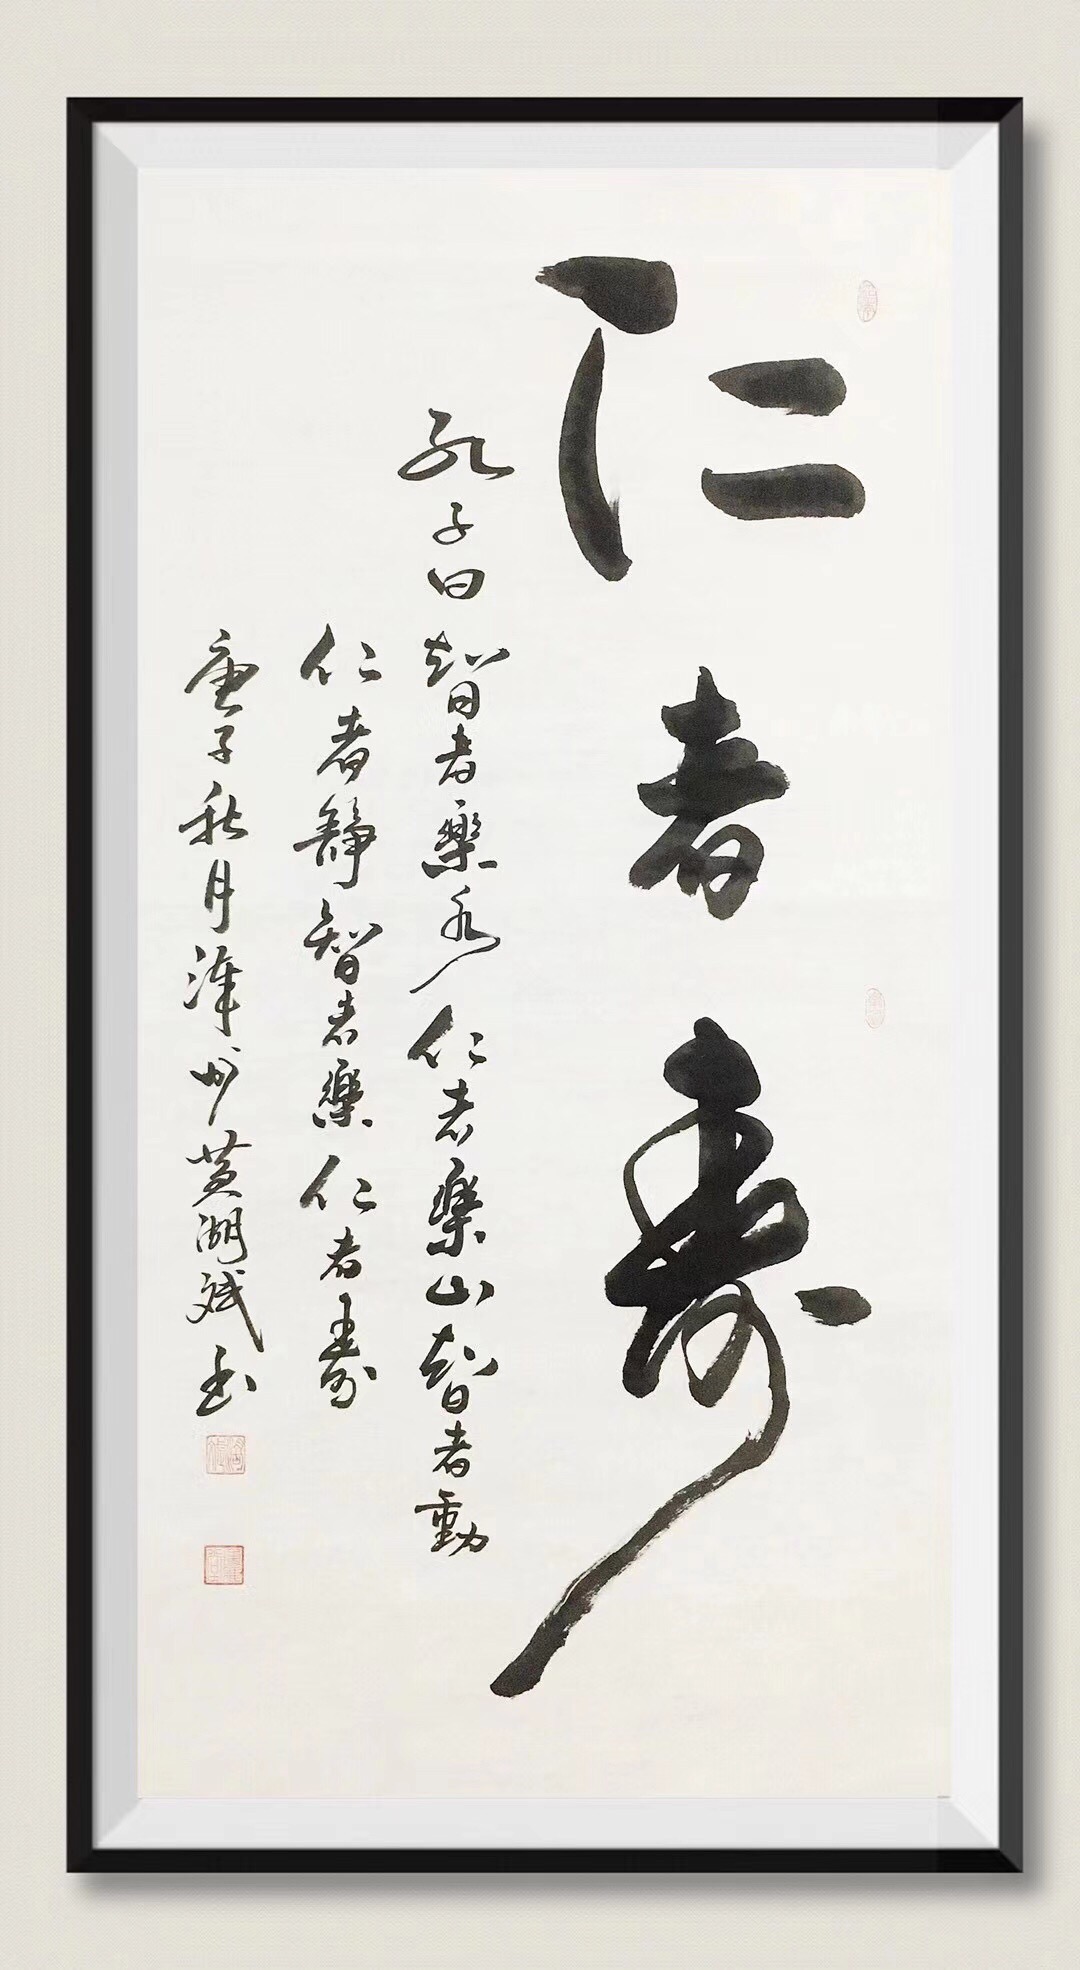 仁者寿
孔子曰智者樂水仁者樂山智者動
仁者静智者樂仁者壽
庚子秋月漳州黄湖斌書